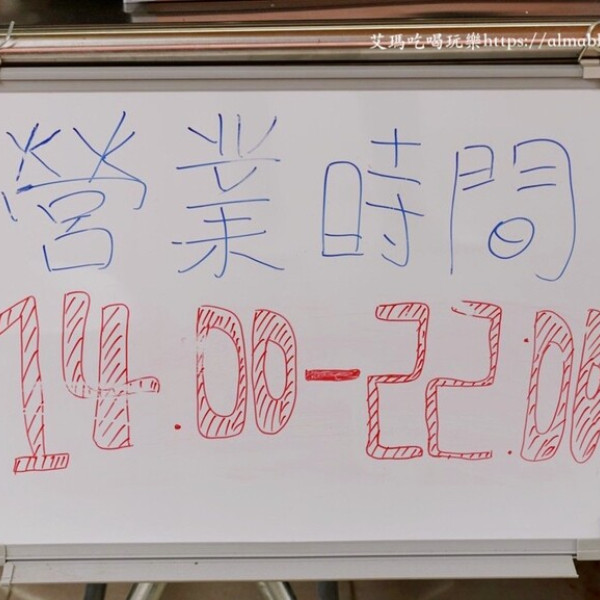 艾瑪吃喝玩樂https://almabl
營業時間
14:00-22:00